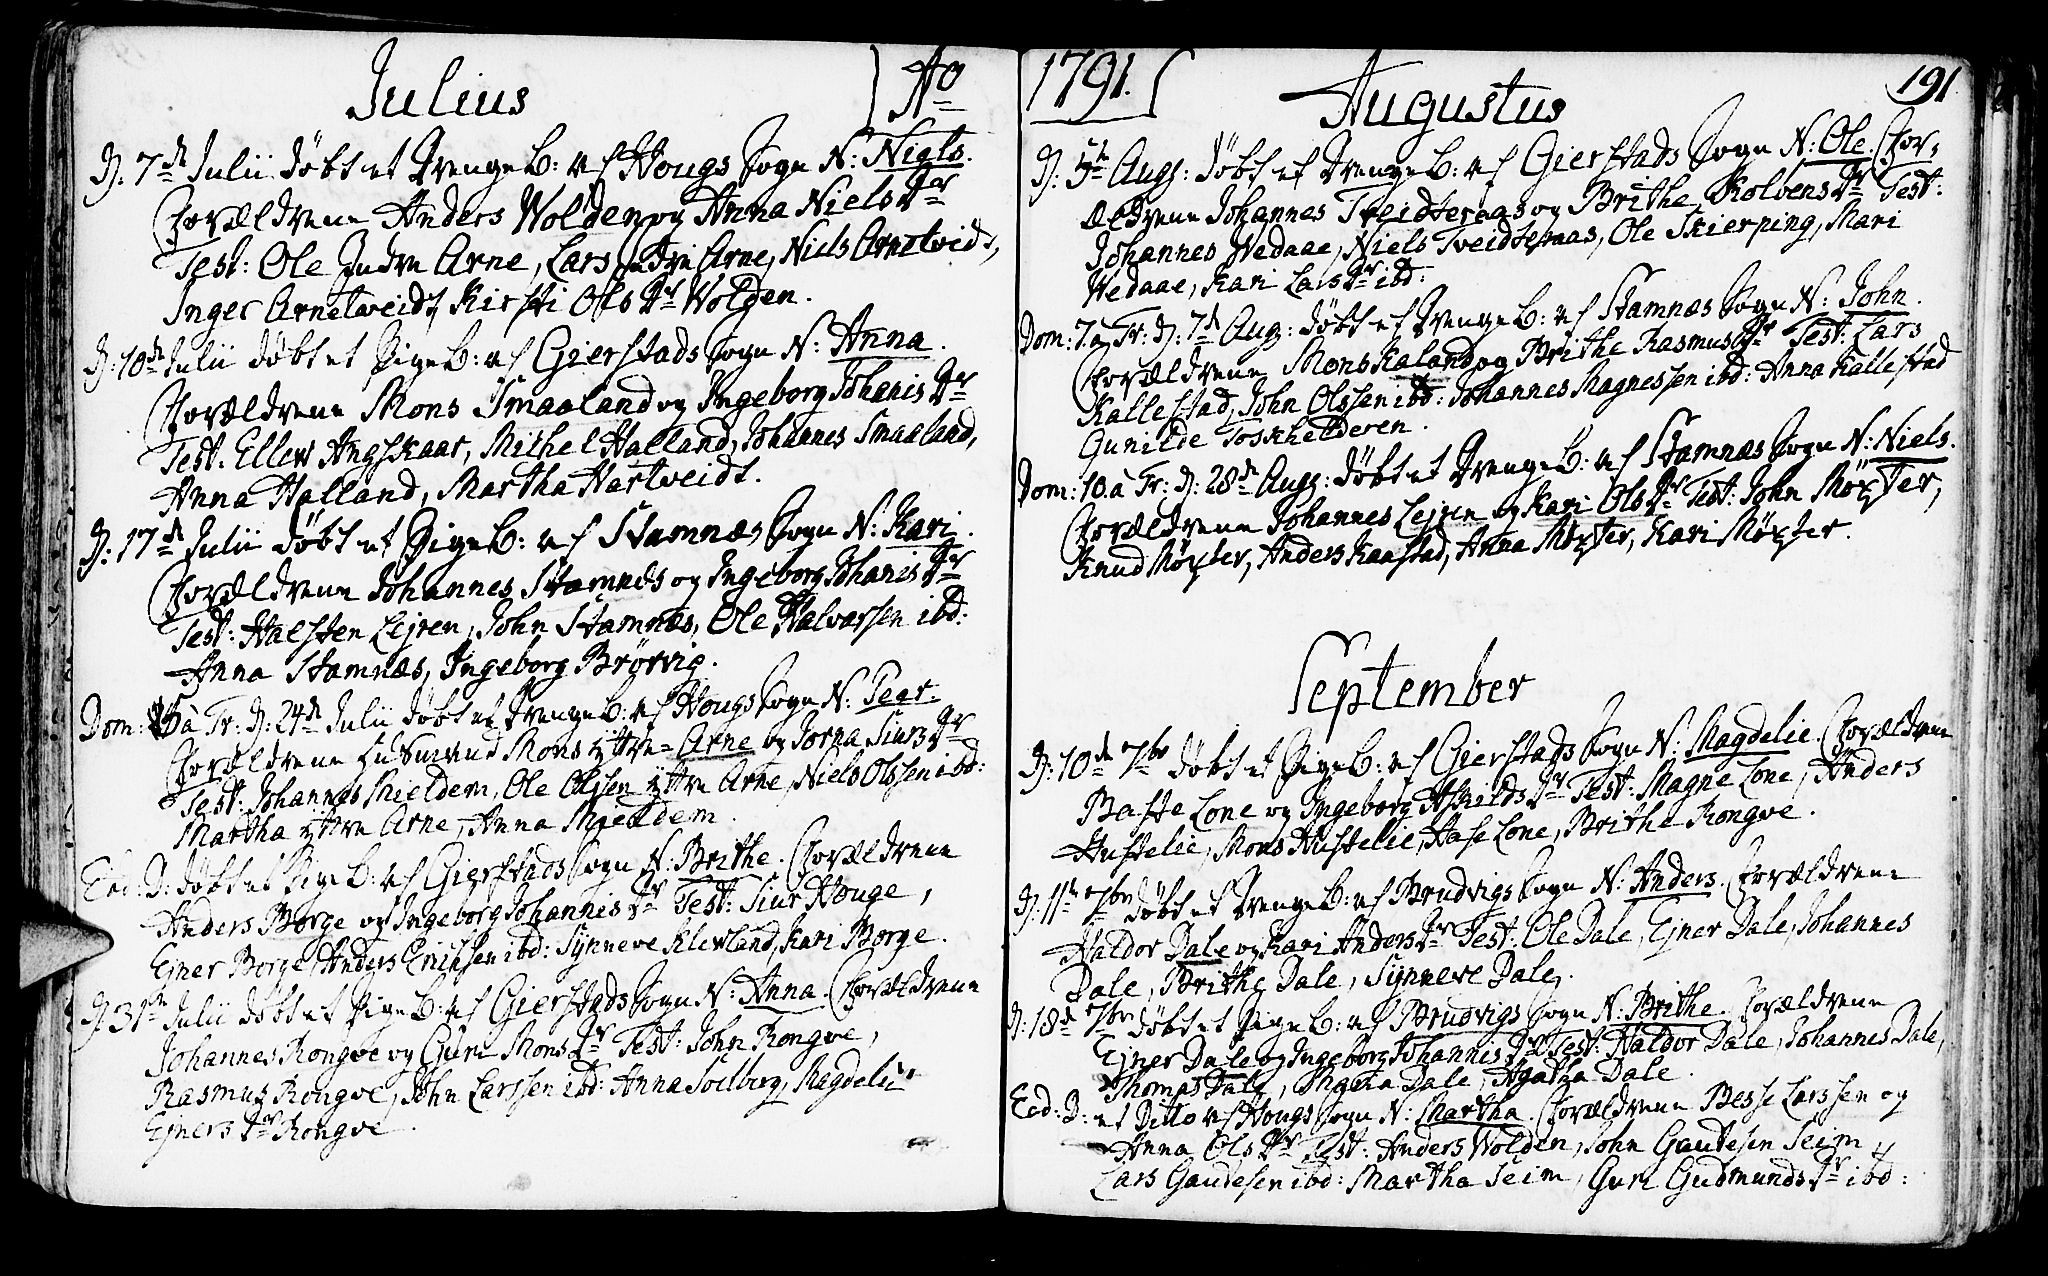 Julius
Ao
D: 7de Julii døbt et Drenge B: af Hougs Sogn N: Niels.
Forældrene Anders Wolden og Anna Niels Dr
Test: Ole Indre Arne, Lars Indre Arne, Niels Arnetveidt,
Inger Arnetveidt, Kirsti Ols Dr Wolden.
D: 10de Julii døbt et Pige B: af Gierstads Sogn N: Anna.
Forældrene Mons Smaaland og Ingeborg Johanis Dr
Test: Ellew Angskaar, Michel Halland, Johannes Smaaland,
Anna Halland, Martha Hartveidt.
D: 17de Julii døbt et Pige B: af Stamnæs Sogn N: Kari.
Forældrene Johannes Stamnes og Ingeborg Johanis Dr
Test: Halsten Lejren, John Stamnæs, Ole Halvorsen ibd:
Anna Stamnæs, Ingeborg Brørvig.
Dom: 5 à Tr: D: 24de Julii døbt et Drenge B: af Hougs Sogn N: Peer.
Forældrene Huusmand Mons yttre Arne og Jorna Siurs Dr
Test: Johannes Mieldem, Ole Olssen yttre Arne, Niels Olssen ibd:
Martha yttre Arne, Anna Mieldem.
Eod: D: døbt et Pige B: af Gierstads Sogn N: Brithe. Forældrene
Anders Borge og Ingeborg Johannis Dr Test: Siur Houge,
Ejner Borge, Anders Erichsen ibd: Synneve Klewland, Kari Borge.
D: 31te Julii døbt et Pige B: af Gierstads Sogn N: Anna. Forældrene
Johannes Rongve og Guri Mons Dr Test: John Rongve,
Rasmus Rongve, John Larssen ibd: Anna Solberg, Magdeli
Ejners Dr Rongve.
1791.
191
Augustus
D: 5te Aug: døbt et Drenge B: af Gierstads Sogn N: Ole. For-
ældrene Johannes Tveidteraas og Brithe Kolbens Dr Test:
Johannes Wedaae, Niels Tveidteraas, Ole Skierping, Mari
Wedaae, Kari Lars Dr ibd:
Dom: 7 à Tr: D: 7de Aug: døbt et Drenge B: af Stamnæs Sogn N: John.
Forældrene Mons Kaland og Brithe Rasmus Dr Test: Lars
Kallestad, John Olssen ibd: Johannes Magnessen ibd: Anna Kallestad
Gunilde Toskhelderen.
Dom: 10 à Tr: D: 28de Aug: døbt et Drenge B: af Stamnæs Sogn N: Niels.
Forældrene Johannes Lejren og Kari Ols Dr Test: John Møxter,
Knud Møxter, Anders Kaastad, Anna Møxter, Kari Møxter.
September
D: 10de 7br døbt et Pige B: af Gierstads Sogn N: Magdelie. Forældrene
Baste Lone og Ingeborg Askilds Dr Test: Magne Lone, Anders
Hustelie, Mons Hustelie, Hase Lone, Brithe Rongve.
D: 11te 7br døbt et Drenge B: af Brudvigs Sogn N: Anders. Forældrene
Haldor Dale og Kari Anders Dr Test: Ole Dale, Ejner Dale, Johannes
Dale, Brithe Dale, Synneve Dale.
D: 18de 7br døbt et Pige B: af Brudvigs Sogn N: Brithe. Forældrene
Ejner Dale og Ingeborg Johannis Dr Test: Haldor Dale, Johannes Dale,
Thomas Dale, Dale, Agatha Dale.
Eod: D: et Ditto af Hougs Sogn N: Martha. Forældrene Besse Larssen og
Anna Ols Dr Test: Anders Wolden, John Gautesen Seim,
Lars Gautesen ibd: Martha Seim, Guri Gudmunds Dr ibd: